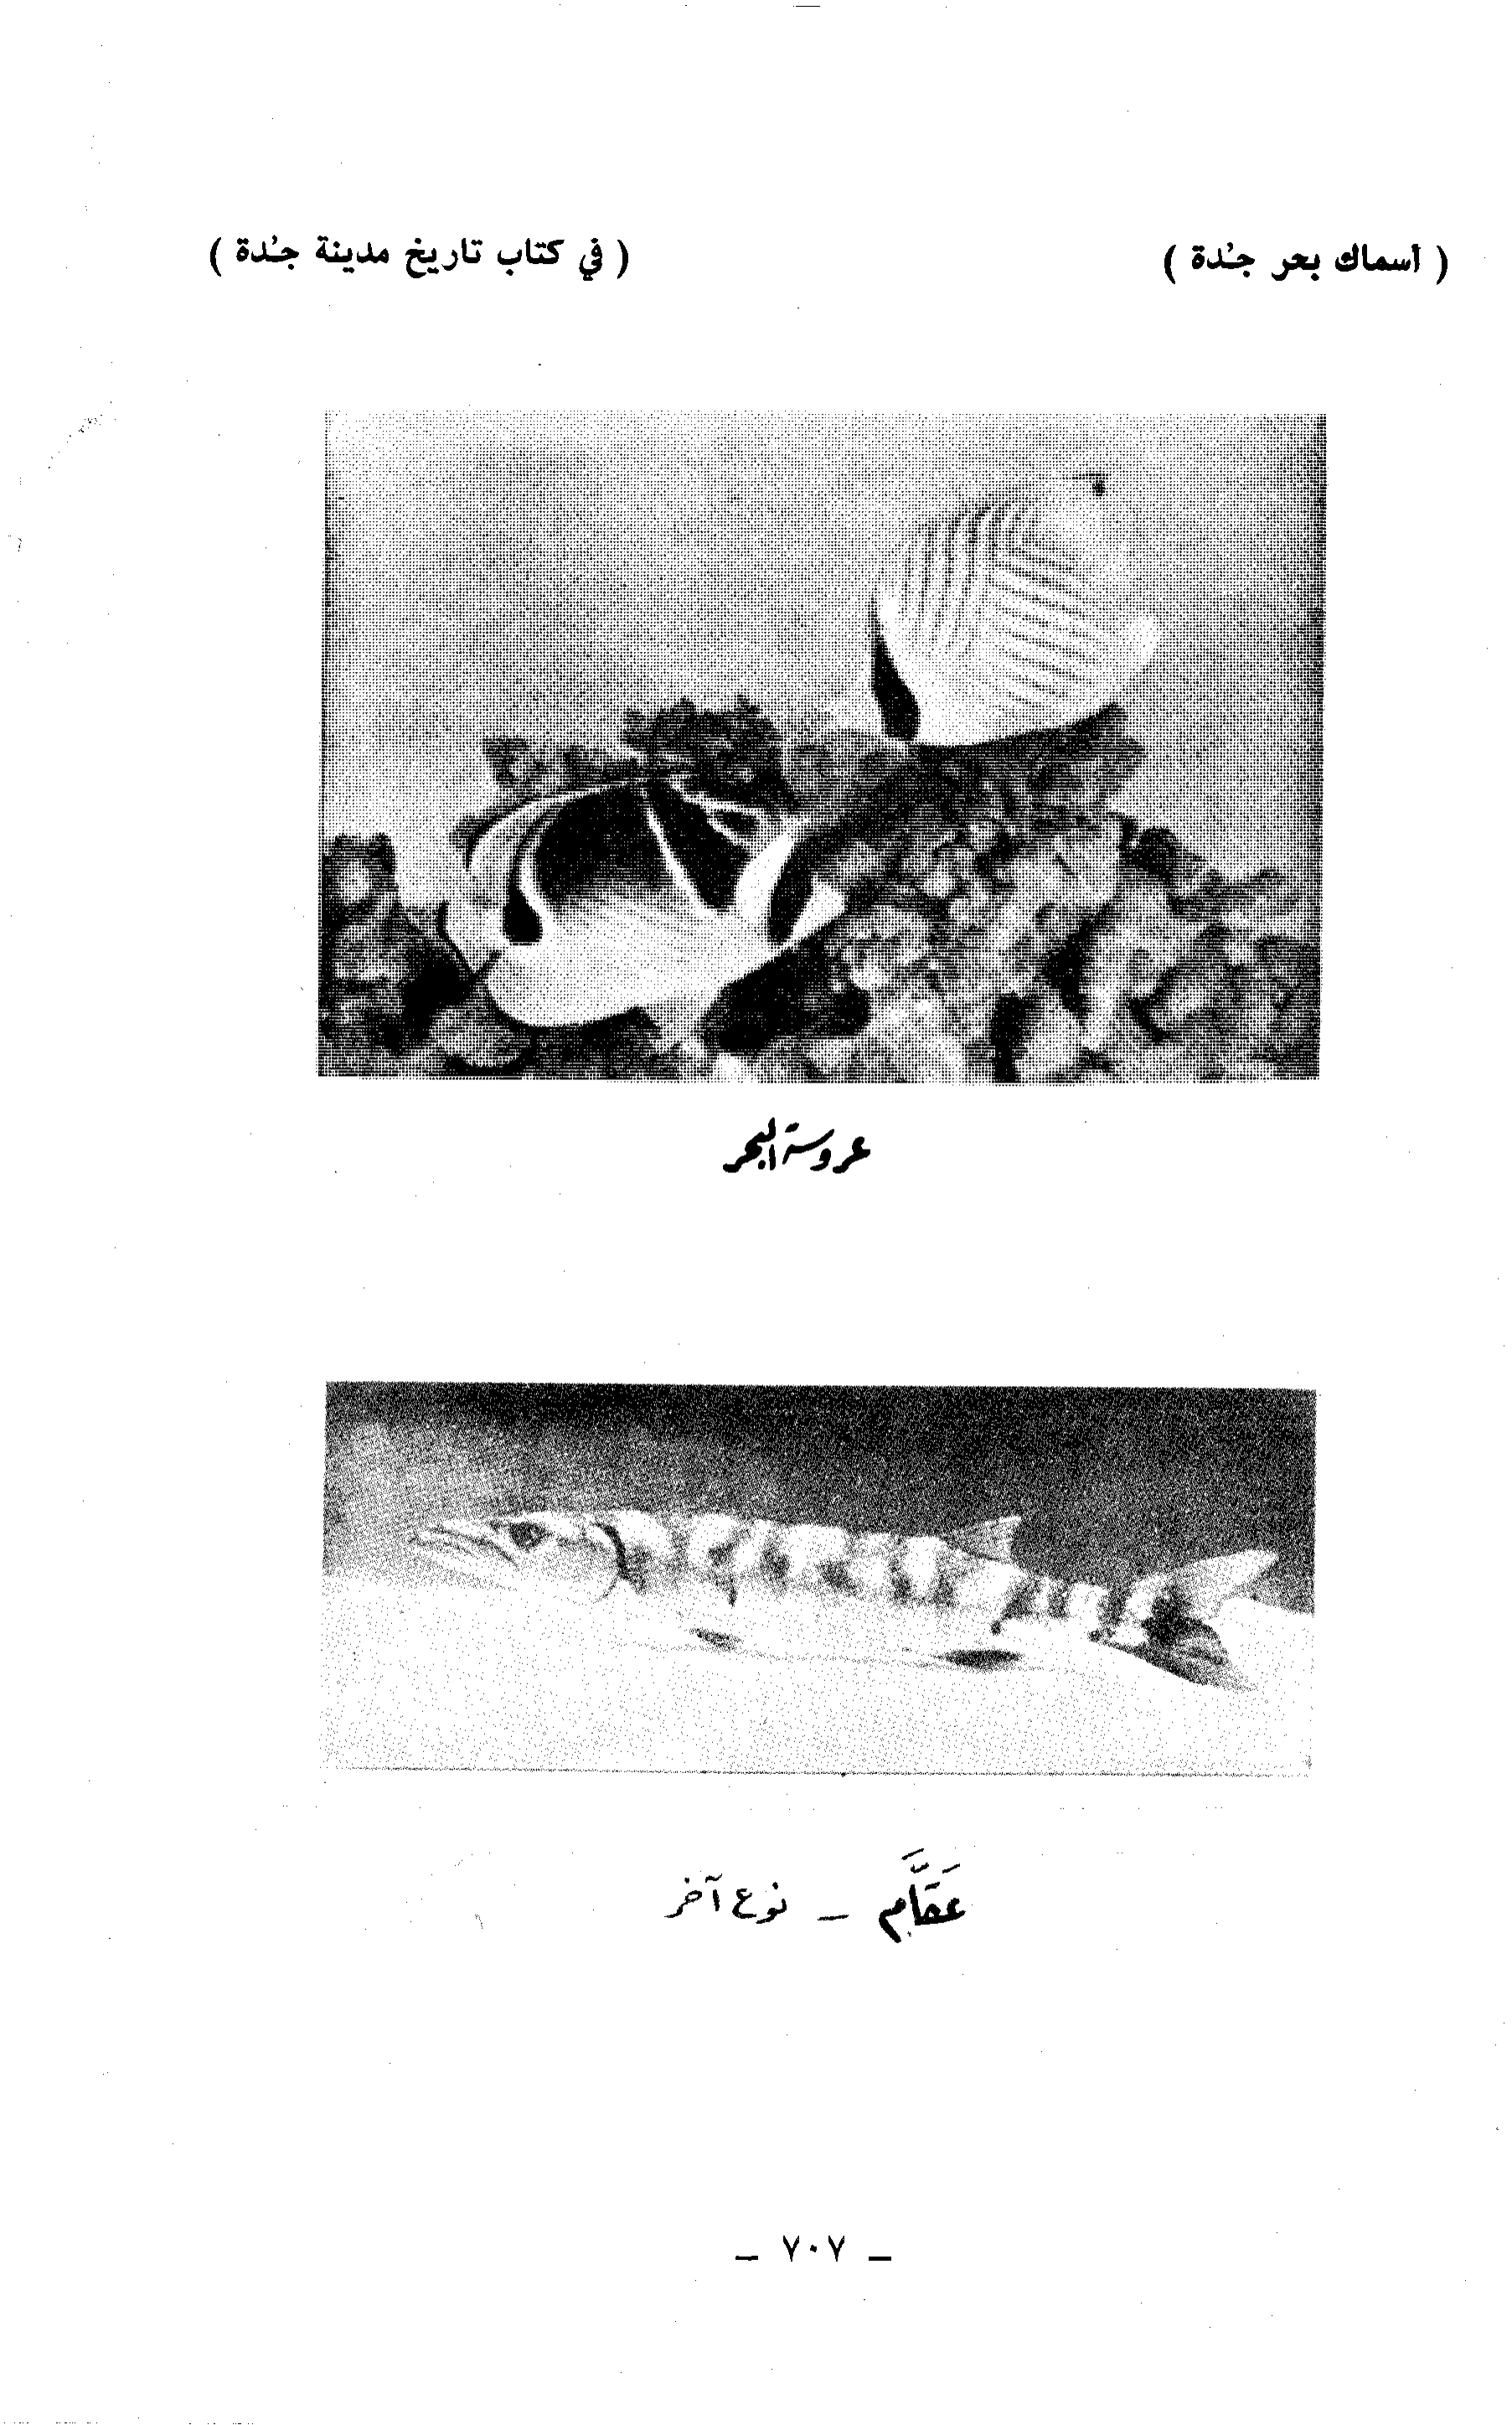 ( أسماك بحر جُدة ) ( في كتاب تاريخ مدينة جُدة )
عروسة البحر
عَقَّام - نوع آخر
- ٧٠٧ -